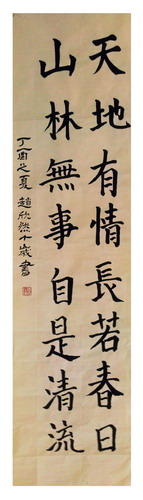 天地有情長若春日
山林無事自是清流
丁酉之夏趙欣然十歲書